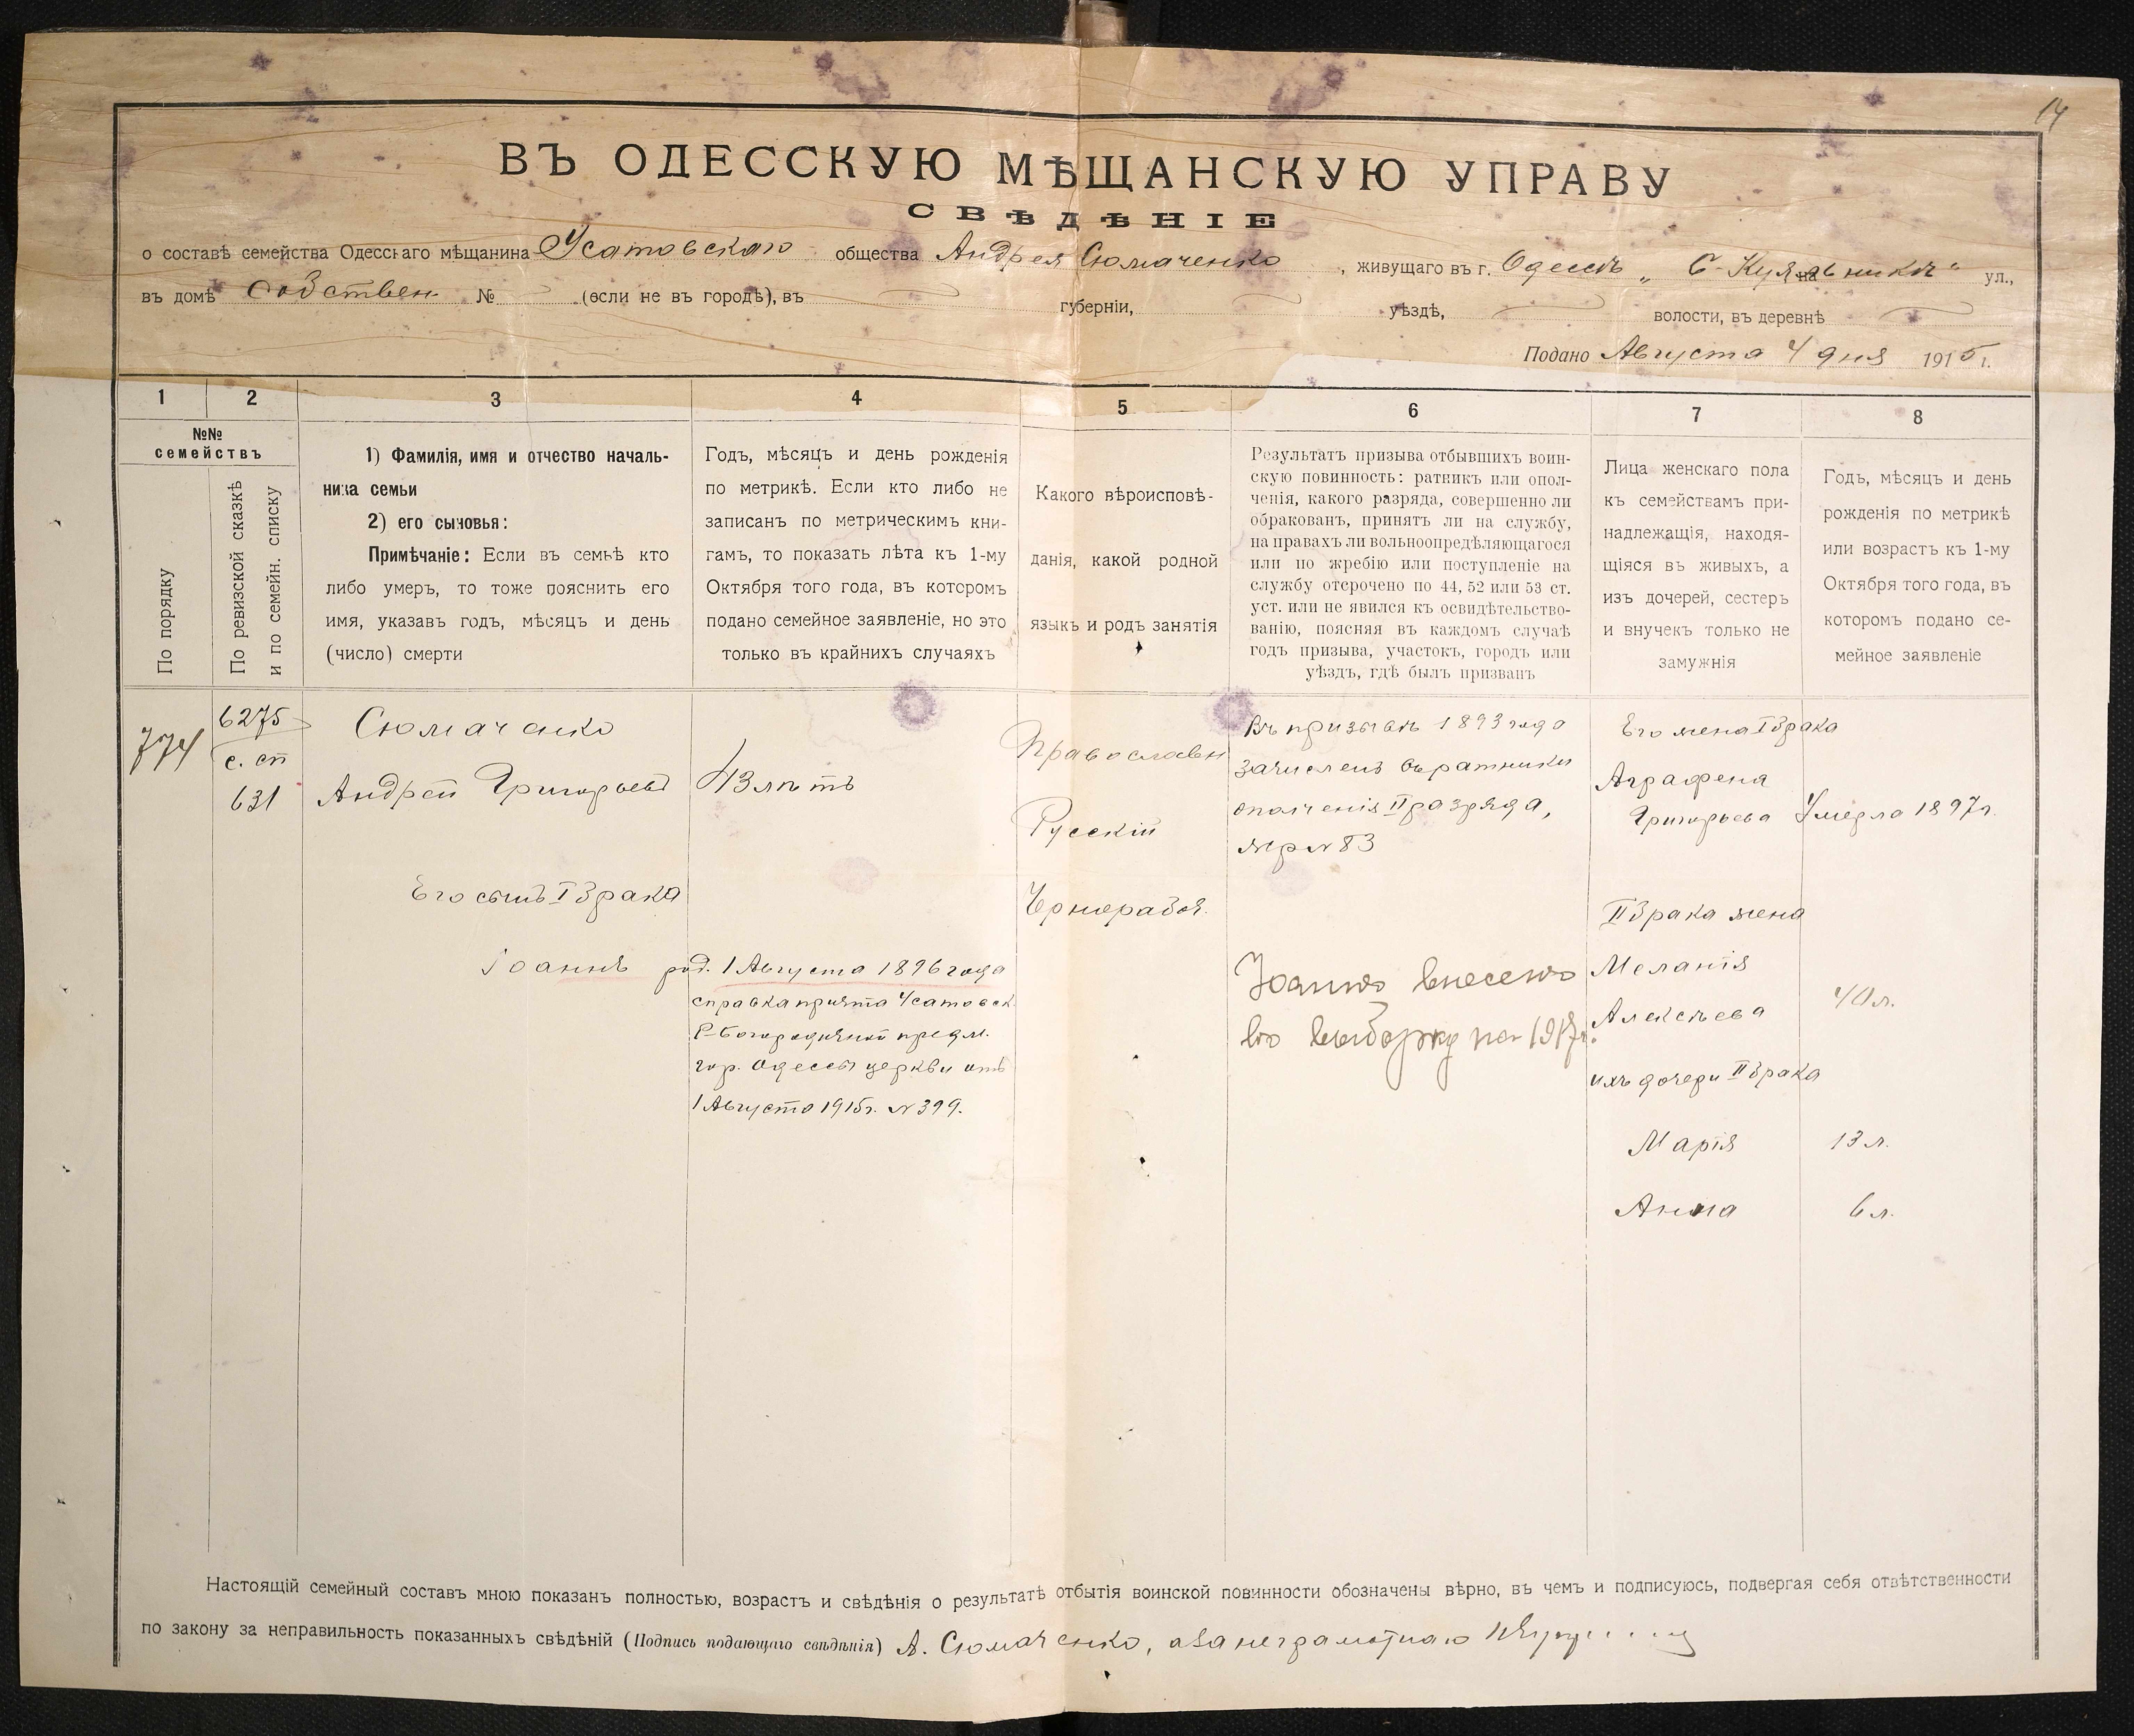 14
ВЪ ОДЕССКУЮ МѢЩАНСКУЮ УПРАВУ
СВѢДѢНІЕ
о составѣ семейства Одесскаго мѣщанина Усатовскаго общества Андрея Сюмаченко, живущаго въ г. Одессѣ „ С-Куяльникъ“ на ул.,
въ домѣ собствен № (если не въ городѣ), въ губерніи, уѣздѣ, волости, въ деревнѣ
Подано Августа 4 дня 1915 г.
1 2 3 4 5 6 7 8
№№
семействъ
По порядку
По ревизской сказкѣ
и по семейн. списку
1) Фамилія, имя и отчество началь-
ника семьи
2) его сыновья:
Примѣчаніе: Если въ семьѣ кто
либо умеръ, то тоже пояснить его
имя, указавъ годъ, мѣсяцъ и день
(число) смерти
Годъ, мѣсяцъ и день рожденія
по метрикѣ. Если кто либо не
записанъ по метрическимъ кни-
гамъ, то показать лѣта къ 1-му
Октября того года, въ которомъ
подано семейное заявленіе, но это
только въ крайнихъ случаяхъ
Какого вѣроисповѣ-
данія, какой родной
языкъ и родъ занятія
Результатъ призыва отбывшихъ воин-
скую повинность: ратникъ или опол-
ченія, какого разряда, совершенно ли
обракованъ, принятъ ли на службу,
на правахъ ли вольноопредѣляющагося
или по жребію или поступленіе на
службу отсрочено по 44, 52 или 53 ст.
уст. или не явился къ освидѣтельство-
ванію, поясняя въ каждомъ случаѣ
годъ призыва, участокъ, городъ или
уѣздъ, гдѣ былъ призванъ
Лица женскаго пола
къ семействамъ при-
надлежащія, находя-
щіяся въ живыхъ, а
изъ дочерей, сестеръ
и внучекъ только не
замужнія
Годъ, мѣсяцъ и день
рожденія по метрикѣ
или возрастъ къ 1-му
Октября того года, въ
которомъ подано се-
мейное заявленіе
774
6275
с. сп
631
Сюмаченко
Андрей Григорьевъ
Его сынъ I брака
Іоаннъ
43 лѣтъ
род. 1 Августа 1896 года
справка причта Усатовск.
Р-Богородичной предм.
гор. Одессы церкви отъ
1 Августа 1915 г. № 399.
Православн
Русскій
Чернорабоч.
Въ призывъ 1893 года
зачисленъ въ ратники
ополченія II разряда,
жр № 83
Іоаннъ внесенъ
въ выборку на 1917 г.
Его жена I брака
Аграфена
Григорьева
Умерла 1897 г.
II брака жена
Меланія
Алексѣева
40 л.
ихъ дочери II брака
Марія
13 л.
Анна
6 л.
Настоящій семейный составъ мною показанъ полностью, возрастъ и свѣдѣнія о результатѣ отбытія воинской повинности обозначены вѣрно, въ чемъ и подписуюсь, подвергая себя отвѣтственности
по закону за неправильность показанныхъ свѣдѣній (Подпись подающаго свѣдѣнія) А. Сюмаченко, а за неграмотнаго